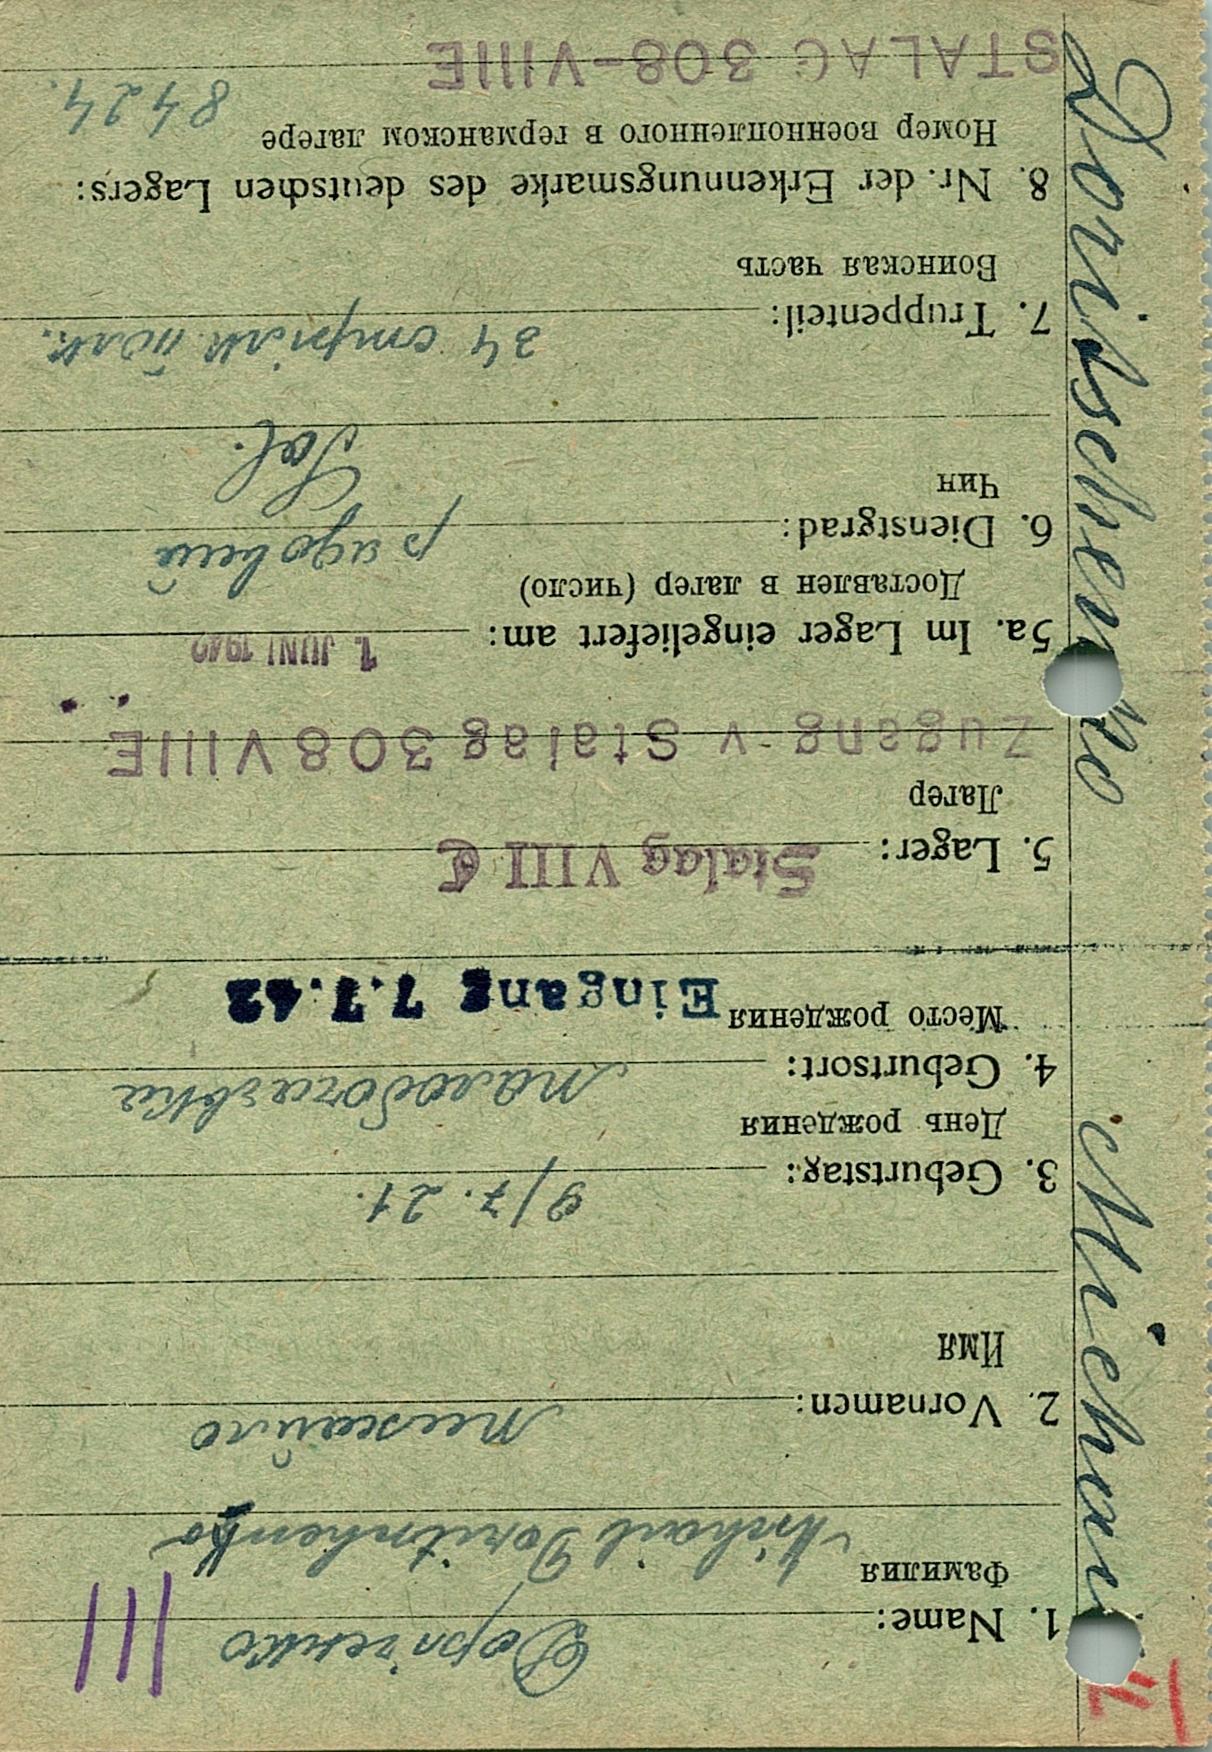 III
1. Name: Доріченко
Фамилия
Michail Doritschenko
2. Vornamen: михайло
Имя
3. Geburtstag: 9/7. 21.
День рождения
4. Geburtsort:
Место рождения Eingang 7.7.42
5. Lager: Stalag VIII C
Лагер
Zugang v. Stalag 308 VIII E
5a. Im Lager eingeliefert am: 1. JUNI 1942
Доставлен в лагер (число)
6. Dienstgrad: рядовий
Чин
Sol.
7. Truppenteil: 34 стріл. полк.
Воинская часть
8. Nr. der Erkennungsmarke des deutschen Lagers:
Номер военнопленного в германском лагере 8424.
STALAG 308-VIIIE
Doritschenko Michail